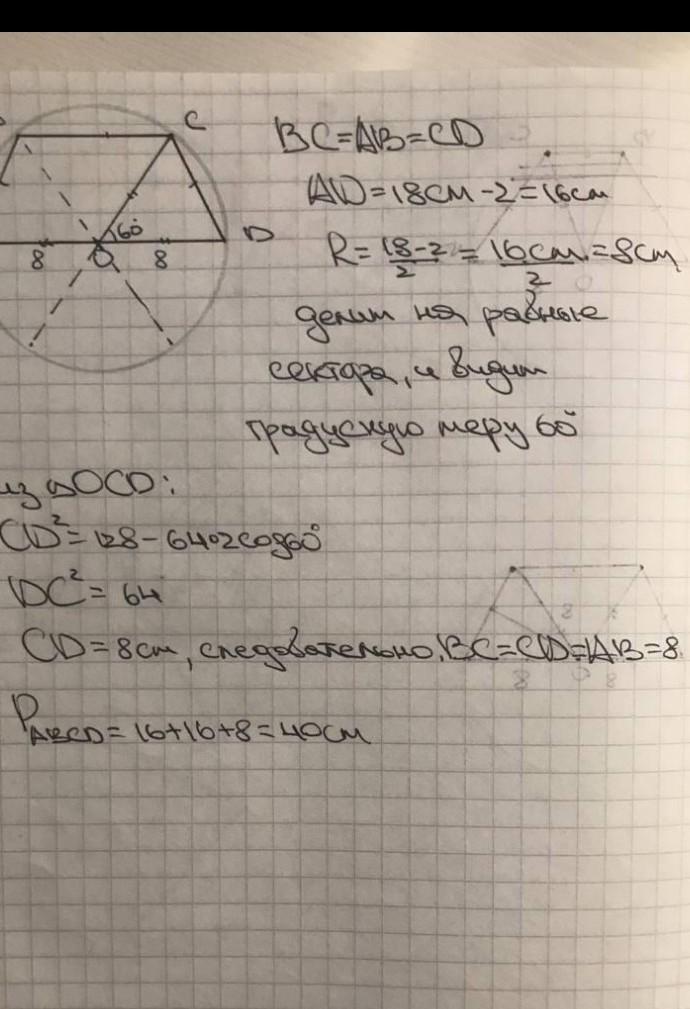 C
BC=AB=CD
AD=18см-2=16см
60°
D
8
O
8
R=18-2/2=16см/2=8см
делим на равные
сектора, и видим
градусную меру 60°
из △OCD:
CD²=128-64•2cos60°
DC²=64
CD=8см, следовательно, BC=CD=AB=8
P ABCD=16+16+8=40см